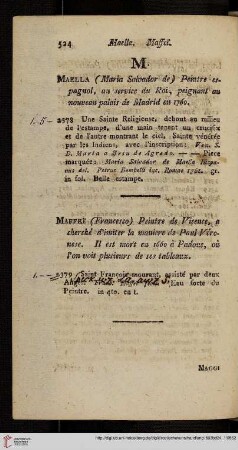 524 Maella. Maffei.
M.
MAELLA (Maria Salvador de) Peintre es-
pagnol, au service du Roi, peignant au
nouveau palais de Madrid en 1760.
1.5- 2378 Une Sainte Religieuse, debout au milieu
de l'estampe, d'une main tenant un crucifix
et de l'autre montrant le ciel. Sainte vénérée
par les Indiens, avec l'inscription: Ven. S.
D. Maria a Jesu de Agreda. Pièce
marquée: Maria Salvador de Maella
inv. Petrus Bombelli inc. Romae 1761. gr.
in fol. Belle estampe.
MAFFEI (Francesco) Peintre de Vicence, a
cherché d'imiter la maniere de Paul Véro-
nese. Il est mort en 1660 à Padoue, où
l'on voit plusieurs de ses tableaux.
1.-- 2379 Saint François mourant, assisté par deux
Anges. Eau forte du
Peintre. in 4to. en t.
MAGGI